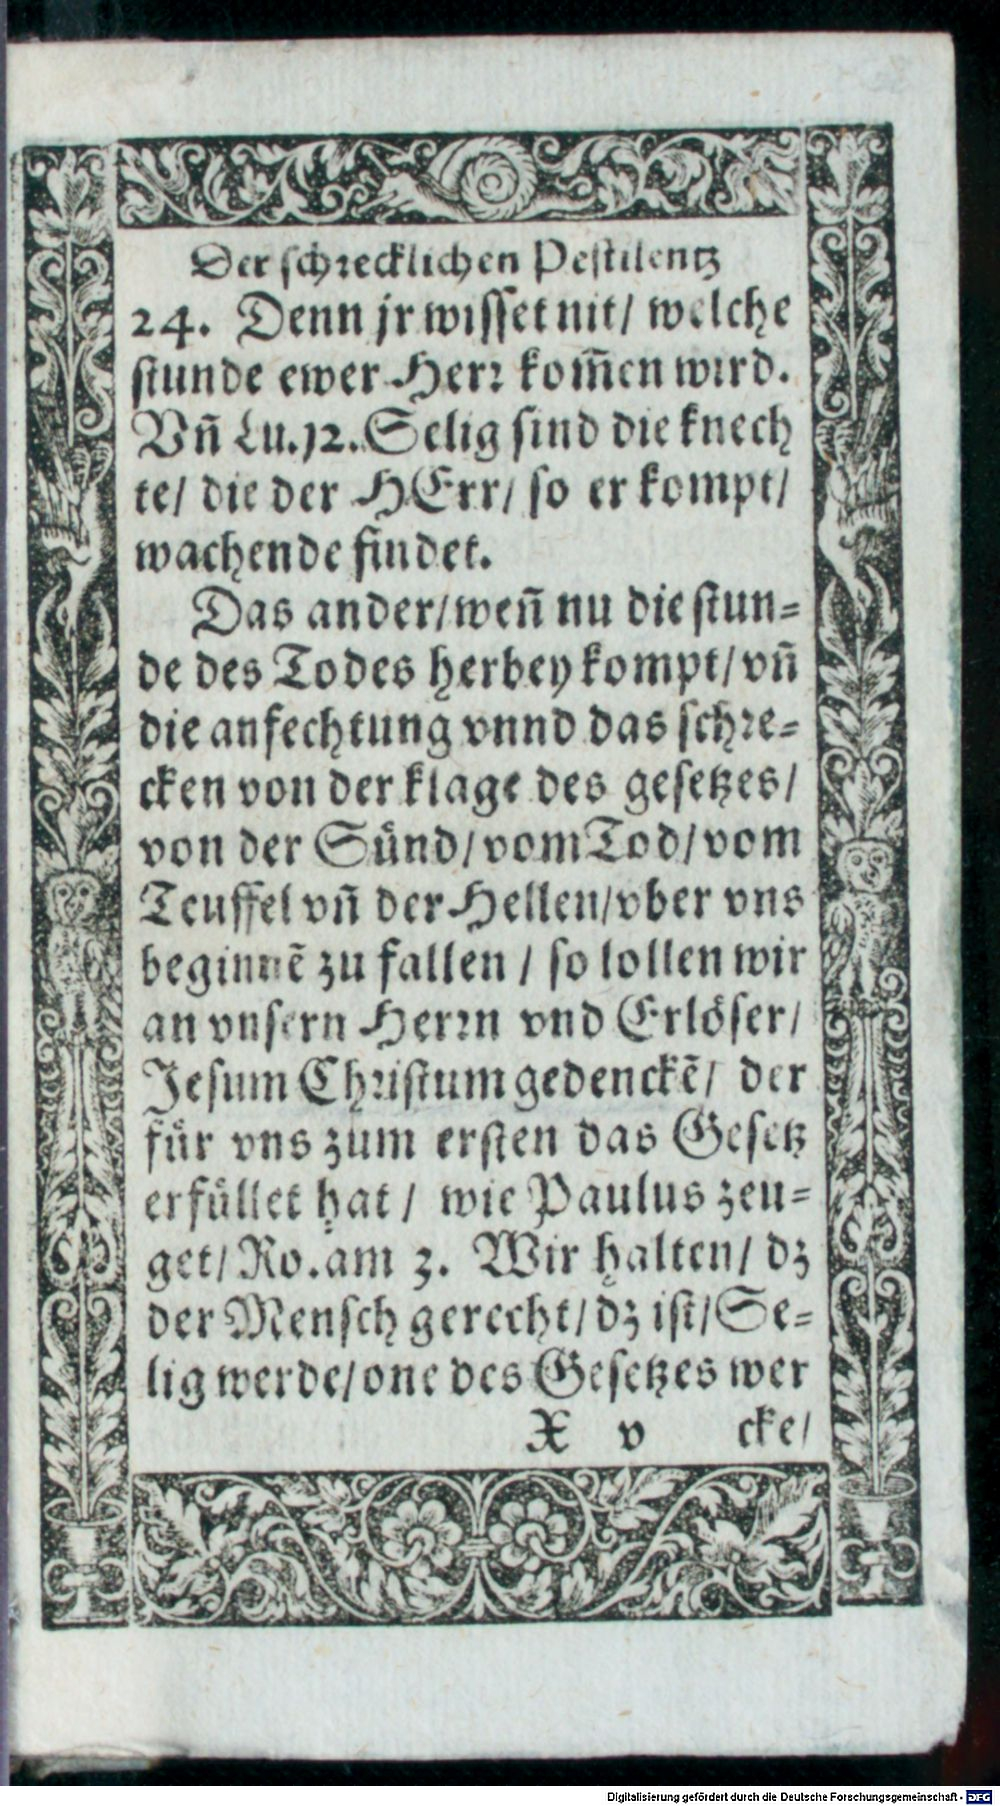 Der schrecklichen Pestilentz
24. Denn jr wisset nit/ welche
stunde ewer Herr kom̃en wird.
Vñ Lu.12. Selig sind die knech
te/ die der HErr/ so er kompt/
wachende findet.
Das ander/ weñ nu die stun⸗
de des Todes herbey kompt/ vñ
die anfechtung vnnd das schre⸗
cken von der klage des gesetzes/
von der Sünd/ vom Tod/ vom
Teuffel vñ der Hellen/ vber vns
beginnẽ zu fallen / so sollen wir
an vnsern Herrn vnd Erlöser/
Jesum Christum gedenckẽ/ der
für vns zum ersten das Gesetz
erfüllet hat / wie Paulus zeu⸗
get/ Ro. am 3. Wir halten/ dz
der Mensch gerecht/ dz ist/ Se⸗
lig werde/ one des Gesetzes wer
X v cke/
Digitalisierung gefördert durch die Deutsche Forschungsgemeinschaft - DFG